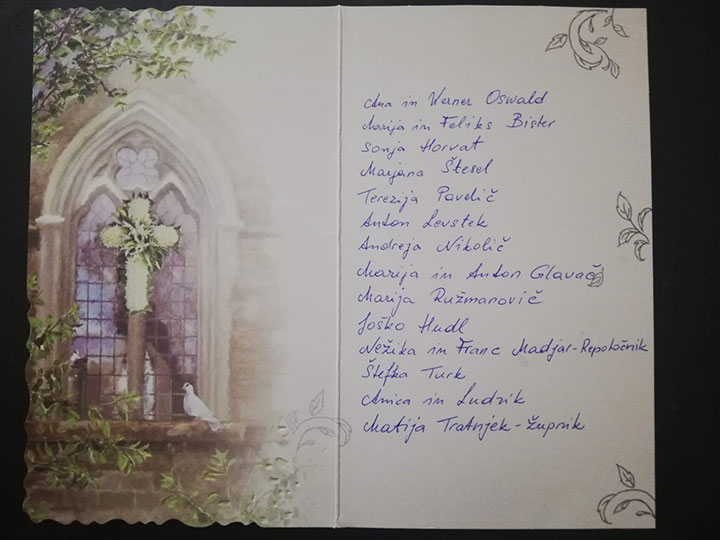 Ana in Werner Oswald
Marija in Feliks Bister
Sonja Horvat
Marjana Štesel
Terezija Pavelič
Anton Levstek
Andreja Nikolič
Marija in Anton Glavač
Marija Ružmanovič
Joško Hudl
Nežika in Franc Madjar-Repoločnik
Štefka Turk
Anica in Ludvik
Matija Tratnjek - župnik